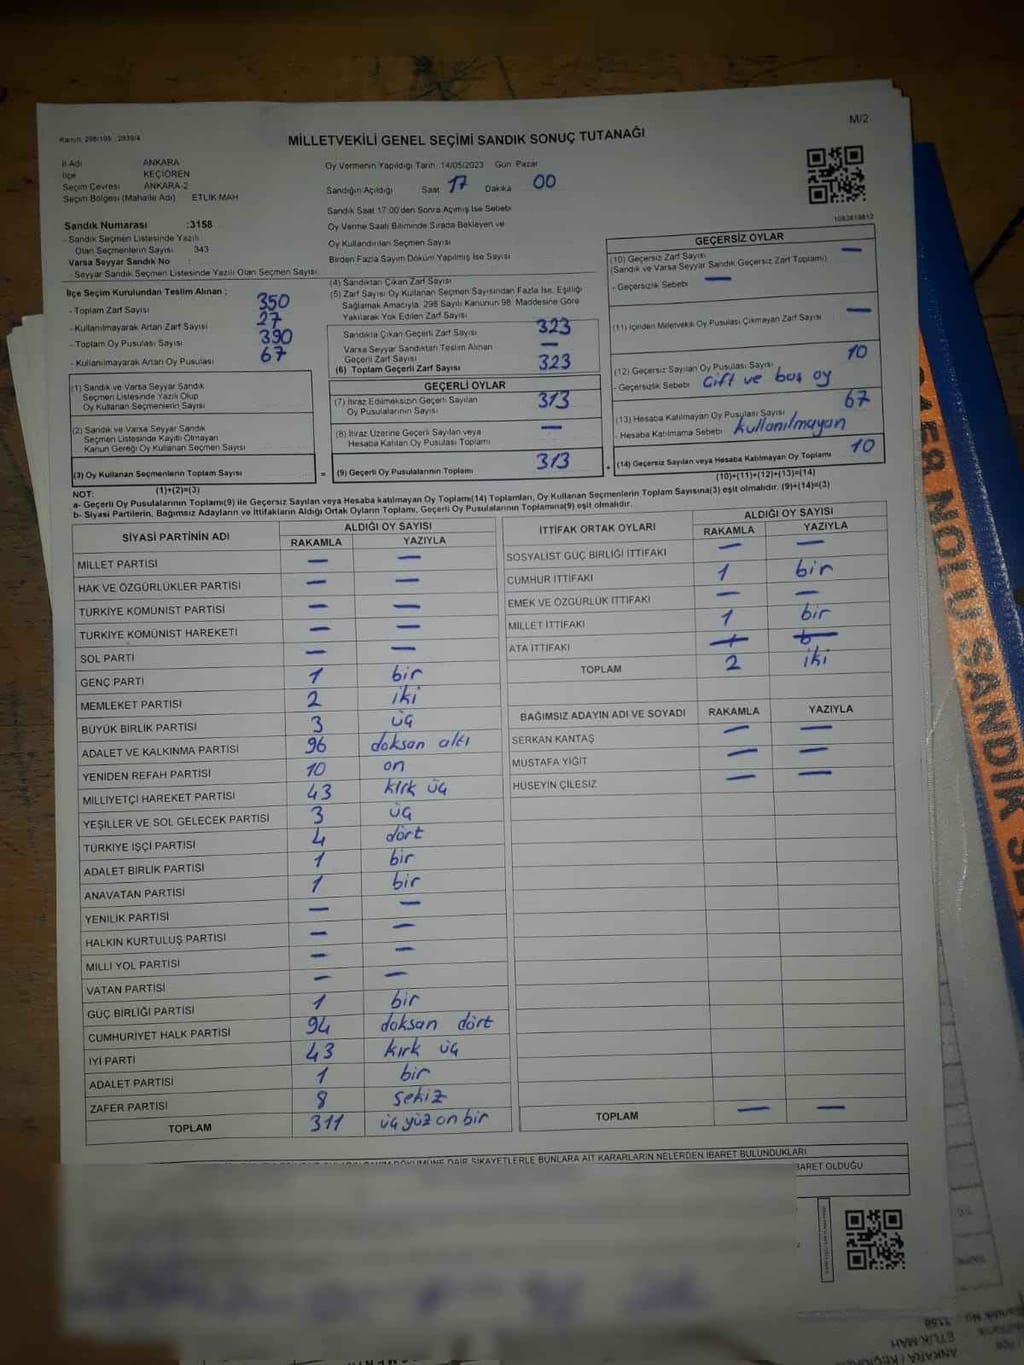 Kanun: 298/105 , 2839/4
M/2
MİLLETVEKİLİ GENEL SEÇİMİ SANDIK SONUÇ TUTANAĞI
İl Adı ANKARA
İlçe KEÇİÖREN
Seçim Çevresi ANKARA-2
Seçim Bölgesi (Mahalle Adı) ETLİK MAH
Oy Vermenin Yapıldığı Tarih 14/05/2023 Gün Pazar
Sandığın Açıldığı Saat 17 Dakika 00
Sandık Saat 17:00'den Sonra Açılmış İse Sebebi
Oy Verme Saati Bitiminde Sırada Bekleyen ve
Oy Kullandırılan Seçmen Sayısı
Birden Fazla Sayım Döküm Yapılmış İse Sayısı
1083819812
Sandık Numarası :3158
- Sandık Seçmen Listesinde Yazılı
Olan Seçmenlerin Sayısı 343
Varsa Seyyar Sandık No :
- Seyyar Sandık Seçmen Listesinde Yazılı Olan Seçmen Sayısı
İlçe Seçim Kurulundan Teslim Alınan :
- Toplam Zarf Sayısı 350
- Kullanılmayarak Artan Zarf Sayısı 27
- Toplam Oy Pusulası Sayısı 390
- Kullanılmayarak Artan Oy Pusulası 67
(1) Sandık ve Varsa Seyyar Sandık
Seçmen Listesinde Yazılı Olup
Oy Kullanan Seçmenlerin Sayısı
(2) Sandık ve Varsa Seyyar Sandık
Seçmen Listesinde Kayıtlı Olmayan
Kanun Gereği Oy Kullanan Seçmen Sayısı
(3) Oy Kullanan Seçmenlerin Toplam Sayısı
(1)+(2)=(3)
(4) Sandıktan Çıkan Zarf Sayısı
(5) Zarf Sayısı Oy Kullanan Seçmen Sayısından Fazla İse, Eşitliği
Sağlamak Amacıyla 298 Sayılı Kanunun 98. Maddesine Göre
Yakılarak Yok Edilen Zarf Sayısı
Sandıkta Çıkan Geçerli Zarf Sayısı 323
Varsa Seyyar Sandıktan Teslim Alınan
Geçerli Zarf Sayısı —
(6) Toplam Geçerli Zarf Sayısı 323
GEÇERLİ OYLAR
(7) İtiraz Edilmeksizin Geçerli Sayılan
Oy Pusulalarının Sayısı 313
(8) İtiraz Üzerine Geçerli Sayılan veya
Hesaba Katılan Oy Pusulası Toplamı —
= (9) Geçerli Oy Pusulalarının Toplamı 313
GEÇERSİZ OYLAR
(10) Geçersiz Zarf Sayısı —
(Sandık ve Varsa Seyyar Sandık Geçersiz Zarf Toplamı)
- Geçersizlik Sebebi —
(11) İçinden Milletvekili Oy Pusulası Çıkmayan Zarf Sayısı —
(12) Geçersiz Sayılan Oy Pusulası Sayısı 10
- Geçersizlik Sebebi Çift ve boş oy
(13) Hesaba Katılmayan Oy Pusulası Sayısı 67
- Hesaba Katılmama Sebebi kullanılmayan
+ (14) Geçersiz Sayılan veya Hesaba Katılmayan Oy Toplamı 10
(10)+(11)+(12)+(13)=(14)
NOT:
a- Geçerli Oy Pusulalarının Toplamı(9) ile Geçersiz Sayılan veya Hesaba katılmayan Oy Toplamı(14) Toplamları, Oy Kullanan Seçmenlerin Toplam Sayısına(3) eşit olmalıdır. (9)+(14)=(3)
b- Siyasi Partilerin, Bağımsız Adayların ve İttifakların Aldığı Ortak Oyların Toplamı, Geçerli Oy Pusulalarının Toplamına(9) eşit olmalıdır.
SİYASİ PARTİNİN ADI ALDIĞI OY SAYISI
RAKAMLA YAZIYLA
MİLLET PARTİSİ — —
HAK VE ÖZGÜRLÜKLER PARTİSİ — —
TÜRKİYE KOMÜNİST PARTİSİ — —
TÜRKİYE KOMÜNİST HAREKETİ — —
SOL PARTİ — —
GENÇ PARTİ 1 bir
MEMLEKET PARTİSİ 2 iki
BÜYÜK BİRLİK PARTİSİ 3 üç
ADALET VE KALKINMA PARTİSİ 96 doksan altı
YENİDEN REFAH PARTİSİ 10 on
MİLLİYETÇİ HAREKET PARTİSİ 43 kırk üç
YEŞİLLER VE SOL GELECEK PARTİSİ 3 üç
TÜRKİYE İŞÇİ PARTİSİ 4 dört
ADALET BİRLİK PARTİSİ 1 bir
ANAVATAN PARTİSİ 1 bir
YENİLİK PARTİSİ — —
HALKIN KURTULUŞ PARTİSİ — —
MİLLİ YOL PARTİSİ — —
VATAN PARTİSİ — —
GÜÇ BİRLİĞİ PARTİSİ 1 bir
CUMHURİYET HALK PARTİSİ 94 doksan dört
İYİ PARTİ 43 kırk üç
ADALET PARTİSİ 1 bir
ZAFER PARTİSİ 8 sekiz
TOPLAM 311 üç yüz on bir
İTTİFAK ORTAK OYLARI ALDIĞI OY SAYISI
RAKAMLA YAZIYLA
SOSYALİST GÜÇ BİRLİĞİ İTTİFAKI — —
CUMHUR İTTİFAKI 1 bir
EMEK VE ÖZGÜRLÜK İTTİFAKI — —
MİLLET İTTİFAKI 1 bir
ATA İTTİFAKI
TOPLAM 2 iki
BAĞIMSIZ ADAYIN ADI VE SOYADI RAKAMLA YAZIYLA
SERKAN KANTAŞ — —
MUSTAFA YİĞİT — —
HÜSEYİN ÇİLESİZ — —
TOPLAM — —
DÖKÜMÜNE DAİR ŞİKAYETLERLE BUNLARA AİT KARARLARIN NELERDEN İBARET BULUNDUKLARI
BARET OLDUĞU
NOLU SANDIK
3158
ETLİK MAH
ANKARA / KEÇİÖREN